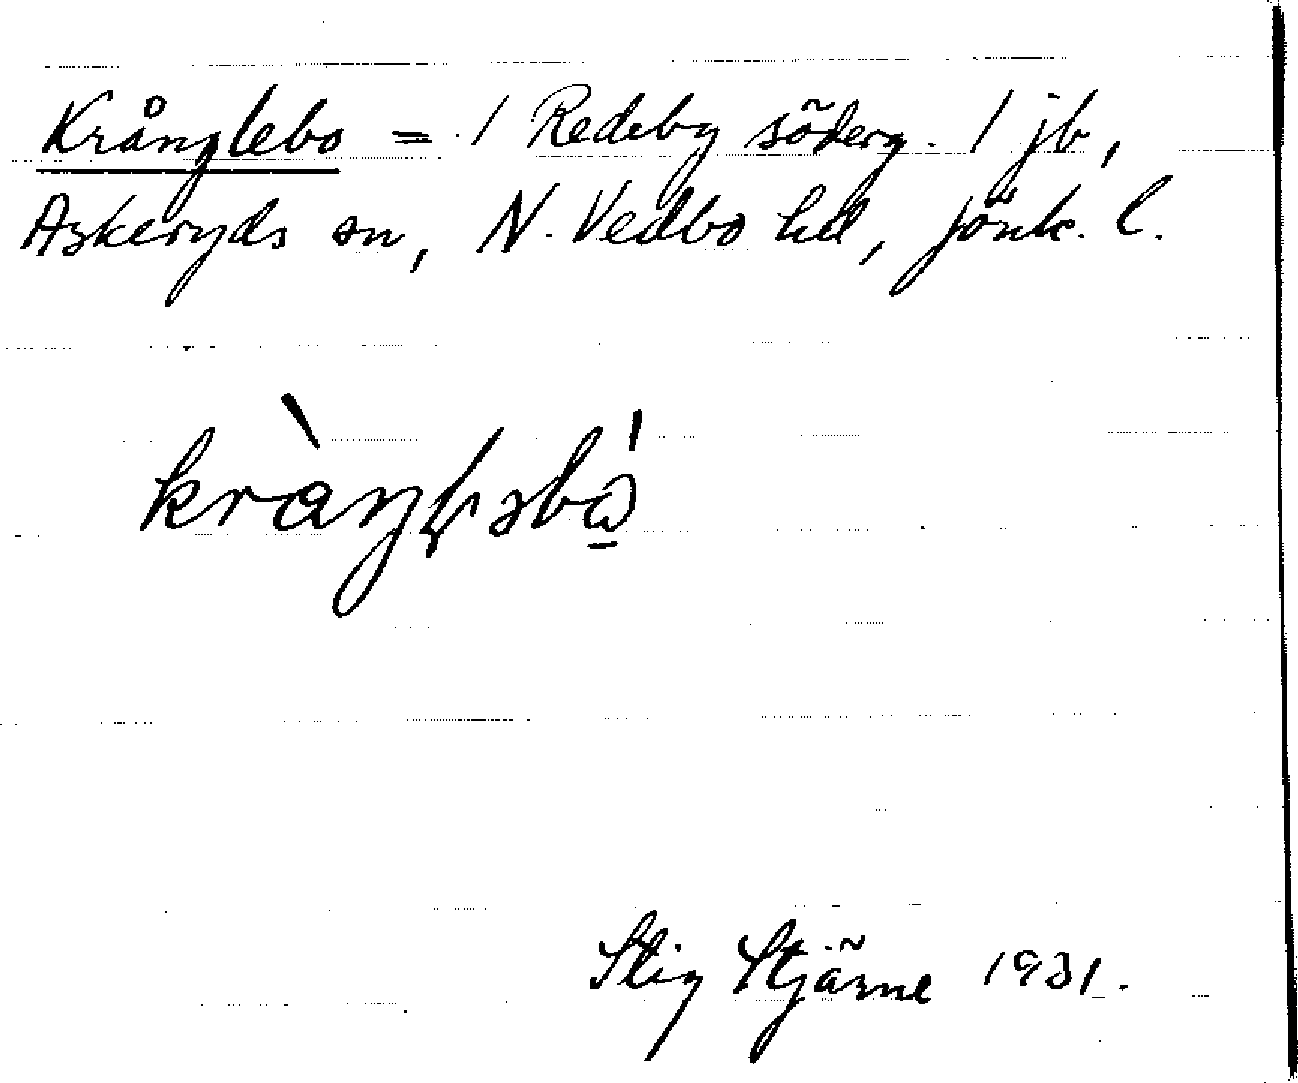 Krånglebo = 1 Redeby söderg. 1 jb,
Askeryds sn, N. Vedbo hd, Jönk. l.
Stig Stjärne 1931.